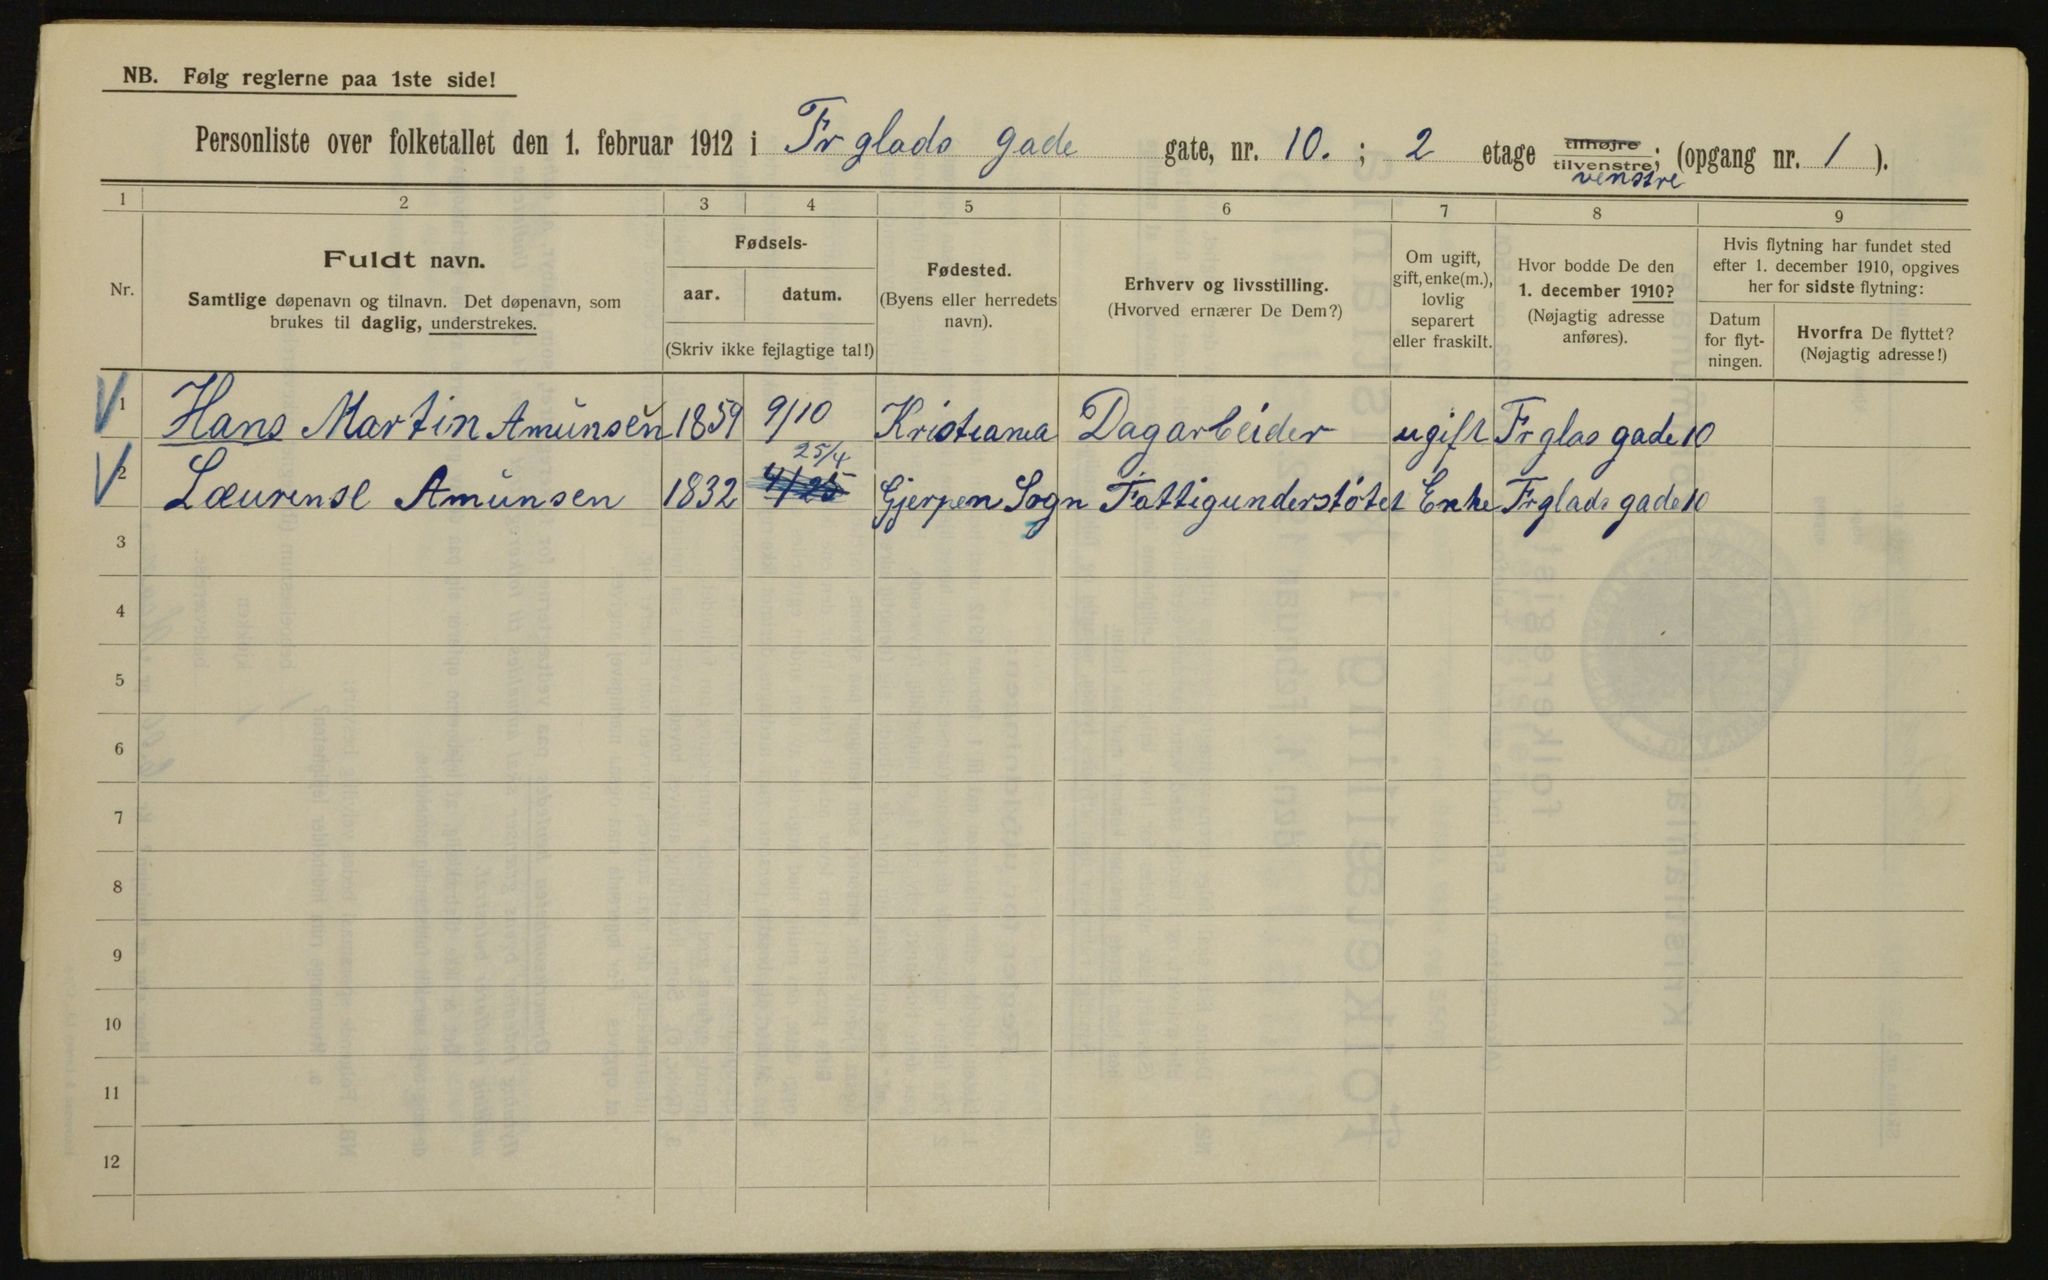 NB. Følg reglerne paa 1ste side!
Personliste over folketallet den 1. februar 1912 i Fr glads gade gate, nr. 10. ; 2 etage tilhøjre tilvenstre; (opgang nr. 1 ).
venstre
1 2 3 4 5 6 7 8 9
Nr.
Fuldt navn.
Samtlige døpenavn og tilnavn. Det døpenavn, som
brukes til daglig, understrekes.
Fødsels-
aar. datum.
(Skriv ikke fejlagtige tal!)
Fødested.
(Byens eller herredets
navn).
Erhverv og livsstilling.
(Hvorved ernærer De Dem?)
Om ugift,
gift, enke(m.),
lovlig
separert
eller fraskilt.
Hvor bodde De den
1. december 1910?
(Nøjagtig adresse
anføres).
Hvis flytning har fundet sted
efter 1. december 1910, opgives
her for sidste flytning:
Datum
for flyt-
ningen.
Hvorfra De flyttet?
(Nøjagtig adresse!)
1 Hans Martin Amunsen 1859 9/10 Kristiania Dagarbeider ugift Fr glas gade 10
25/4
2 Laurense Amunsen 1832 4/25 Gjerpen Sogn Fattigunderstøtet Enke Fr glads gade 10
3
4
5
6
7
8
9
10
11
12